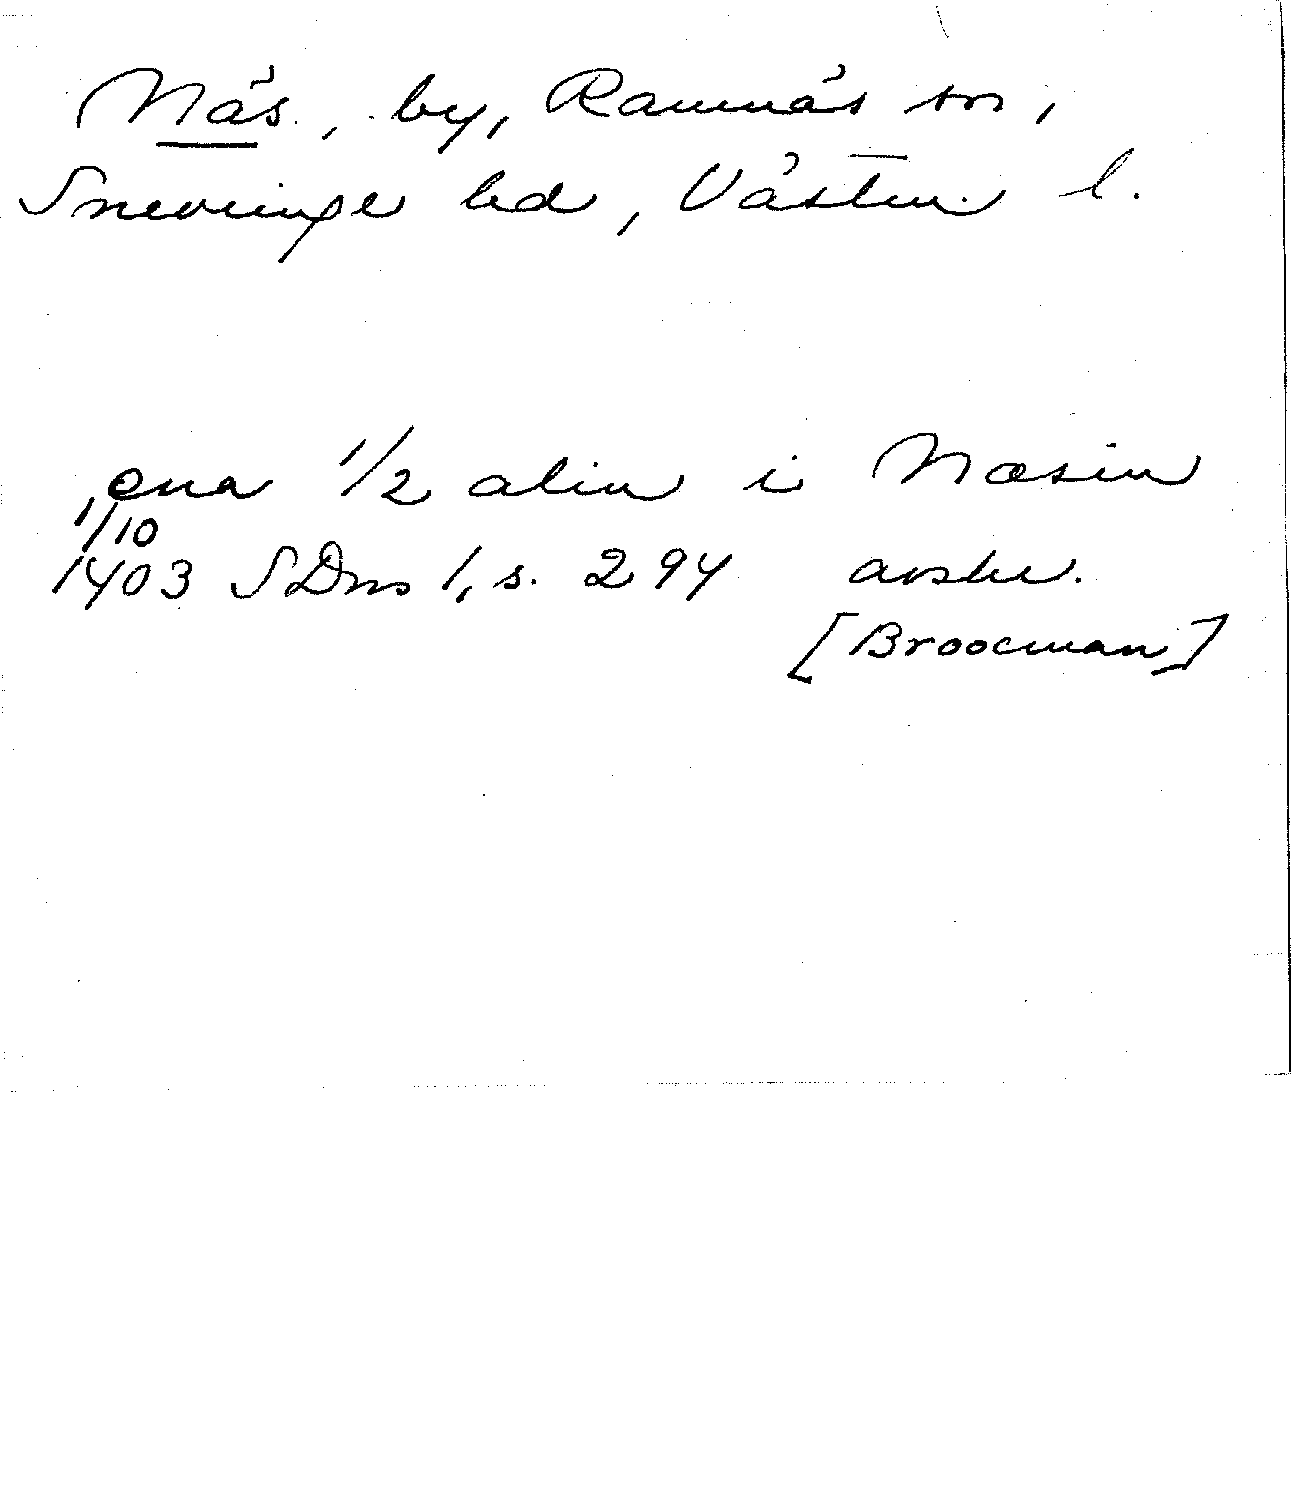 Näs, by, Ramnäs sn,
Snevringe hd, Västm. l.
ena 1/2 alin i Næsin
1/10
1403 SDns 1, s. 294 avskr.
[Broocman]